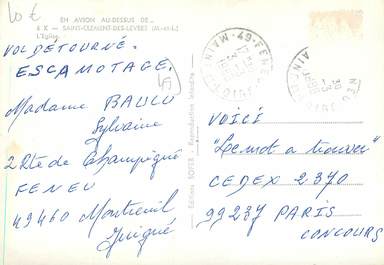 10 €
EN AVION AU-DESSUS DE...
6 K — SAINT-CLEMENT-DES-LEVEES (M.-et-L.)
L'Eglise.
VOL DETOURNÉ.
ESCAMOTAGE.
Madame BAULU
Sylvaine
2 Rte de Champigné
FENEU
49460 Montreuil
Juigné
Editions BOYER - Reproduction interdite
49-FENEU
MAINE
LOIRE
VOICI
"Le mot a trouver"
CEDEX 2370
99237 PARIS
CONCOURS